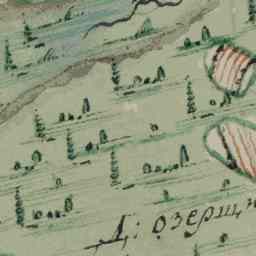 Д: озерщи